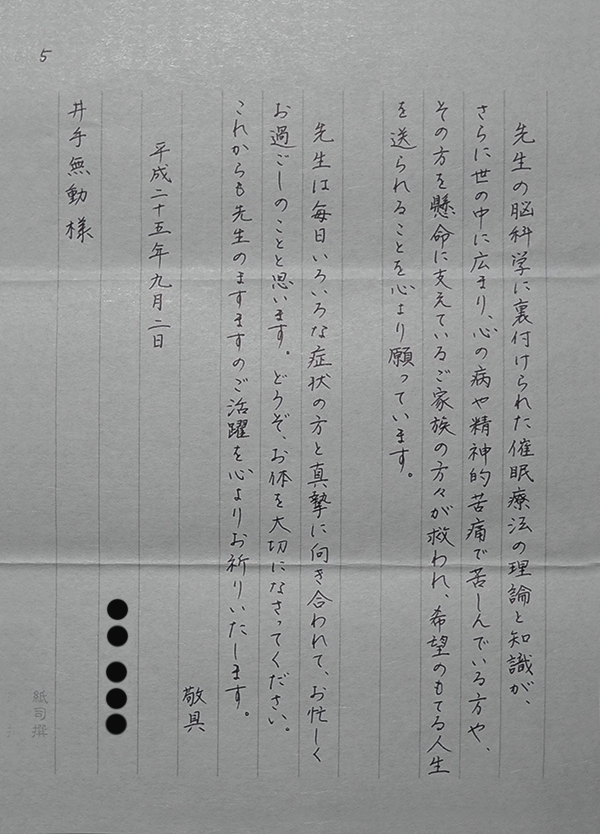 5
先生の脳科学に裏付けられた催眠療法の理論と知識が、
さらに世の中に広まり、心の病や精神的苦痛で苦しんでいる方や、
その方を懸命に支えているご家族の方々が救われ、希望のもてる人生
を送られることを心より願っています。
先生は毎日いろいろな症状の方と真摯に向き合われて、お忙しく
お過ごしのことと思います。どうぞ、お体を大切になさってください。
これからも先生のますますのご活躍を心よりお祈りいたします。
敬具
平成二十五年九月二日
井手無動様
紙司撰